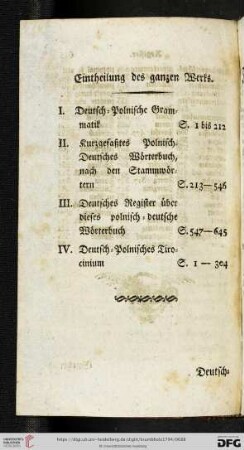 Eintheilung des ganzen Werks.
I. Deutsch-Polnische Gram-
matik S. 1 bis 212
II. Kurzgefaßtes Polnisch-
Deutsches Wörterbuch,
nach den Stammwör-
tern S. 213—546
III. Deutsches Register über
dieses polnisch-deutsche
Wörterbuch S. 547—645
IV. Deutsch-Polnisches Tiro-
cinium S. 1 — 304
Deutsch-
UNIVERSITÄTS-
BIBLIOTHEK
HEIDELBERG
DFG